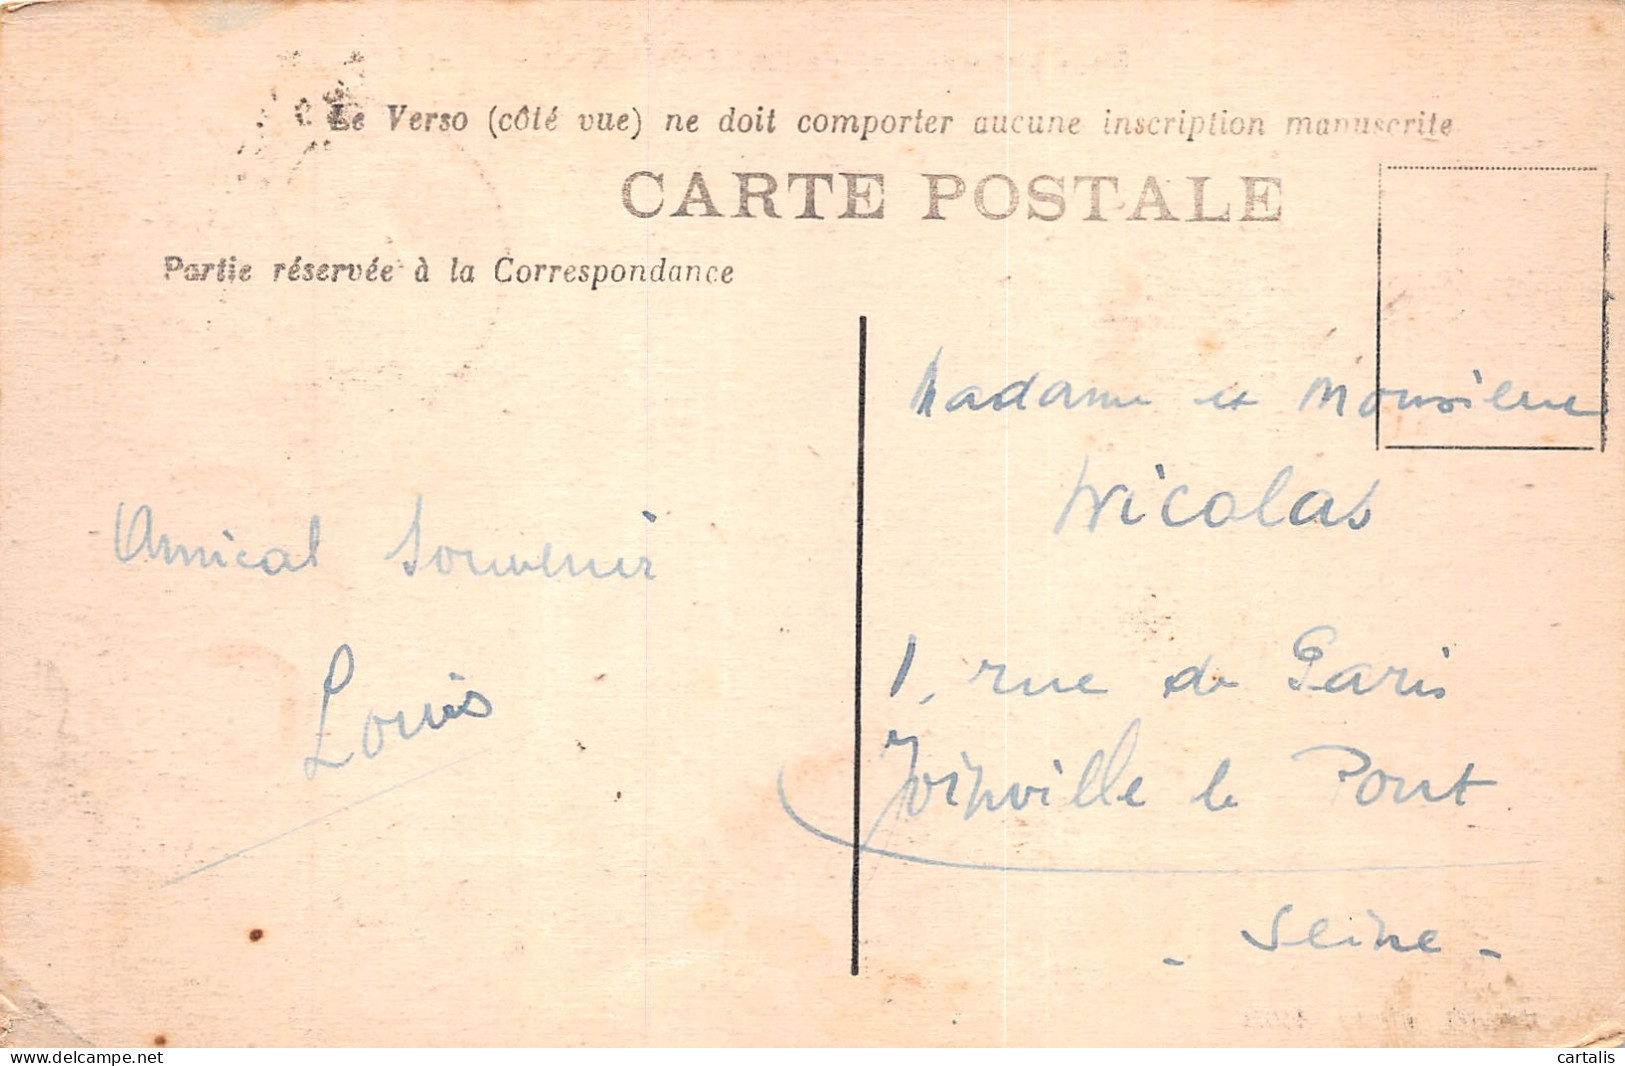 Le Verso (côté vue) ne doit comporter aucune inscription manuscrite
CARTE POSTALE
Partie réservée à la Correspondance
Amical Souvenir
Louis
Madame et Monsieur
Nicolas
1, rue de Paris
Joinville le Pont
- Seine -
delcampe.net
cartalis